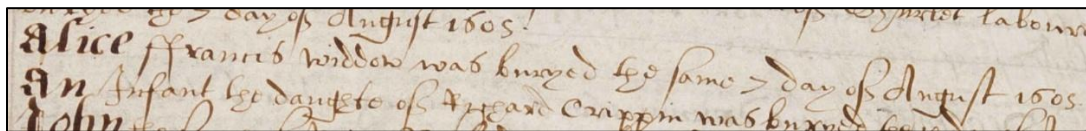 buryed the 7 day of August 1605. of labour
Alice ffrancis widdow was buryed the same 7 day of August 1605
An Infant the daughte of Richard Crippin was buryed the
John